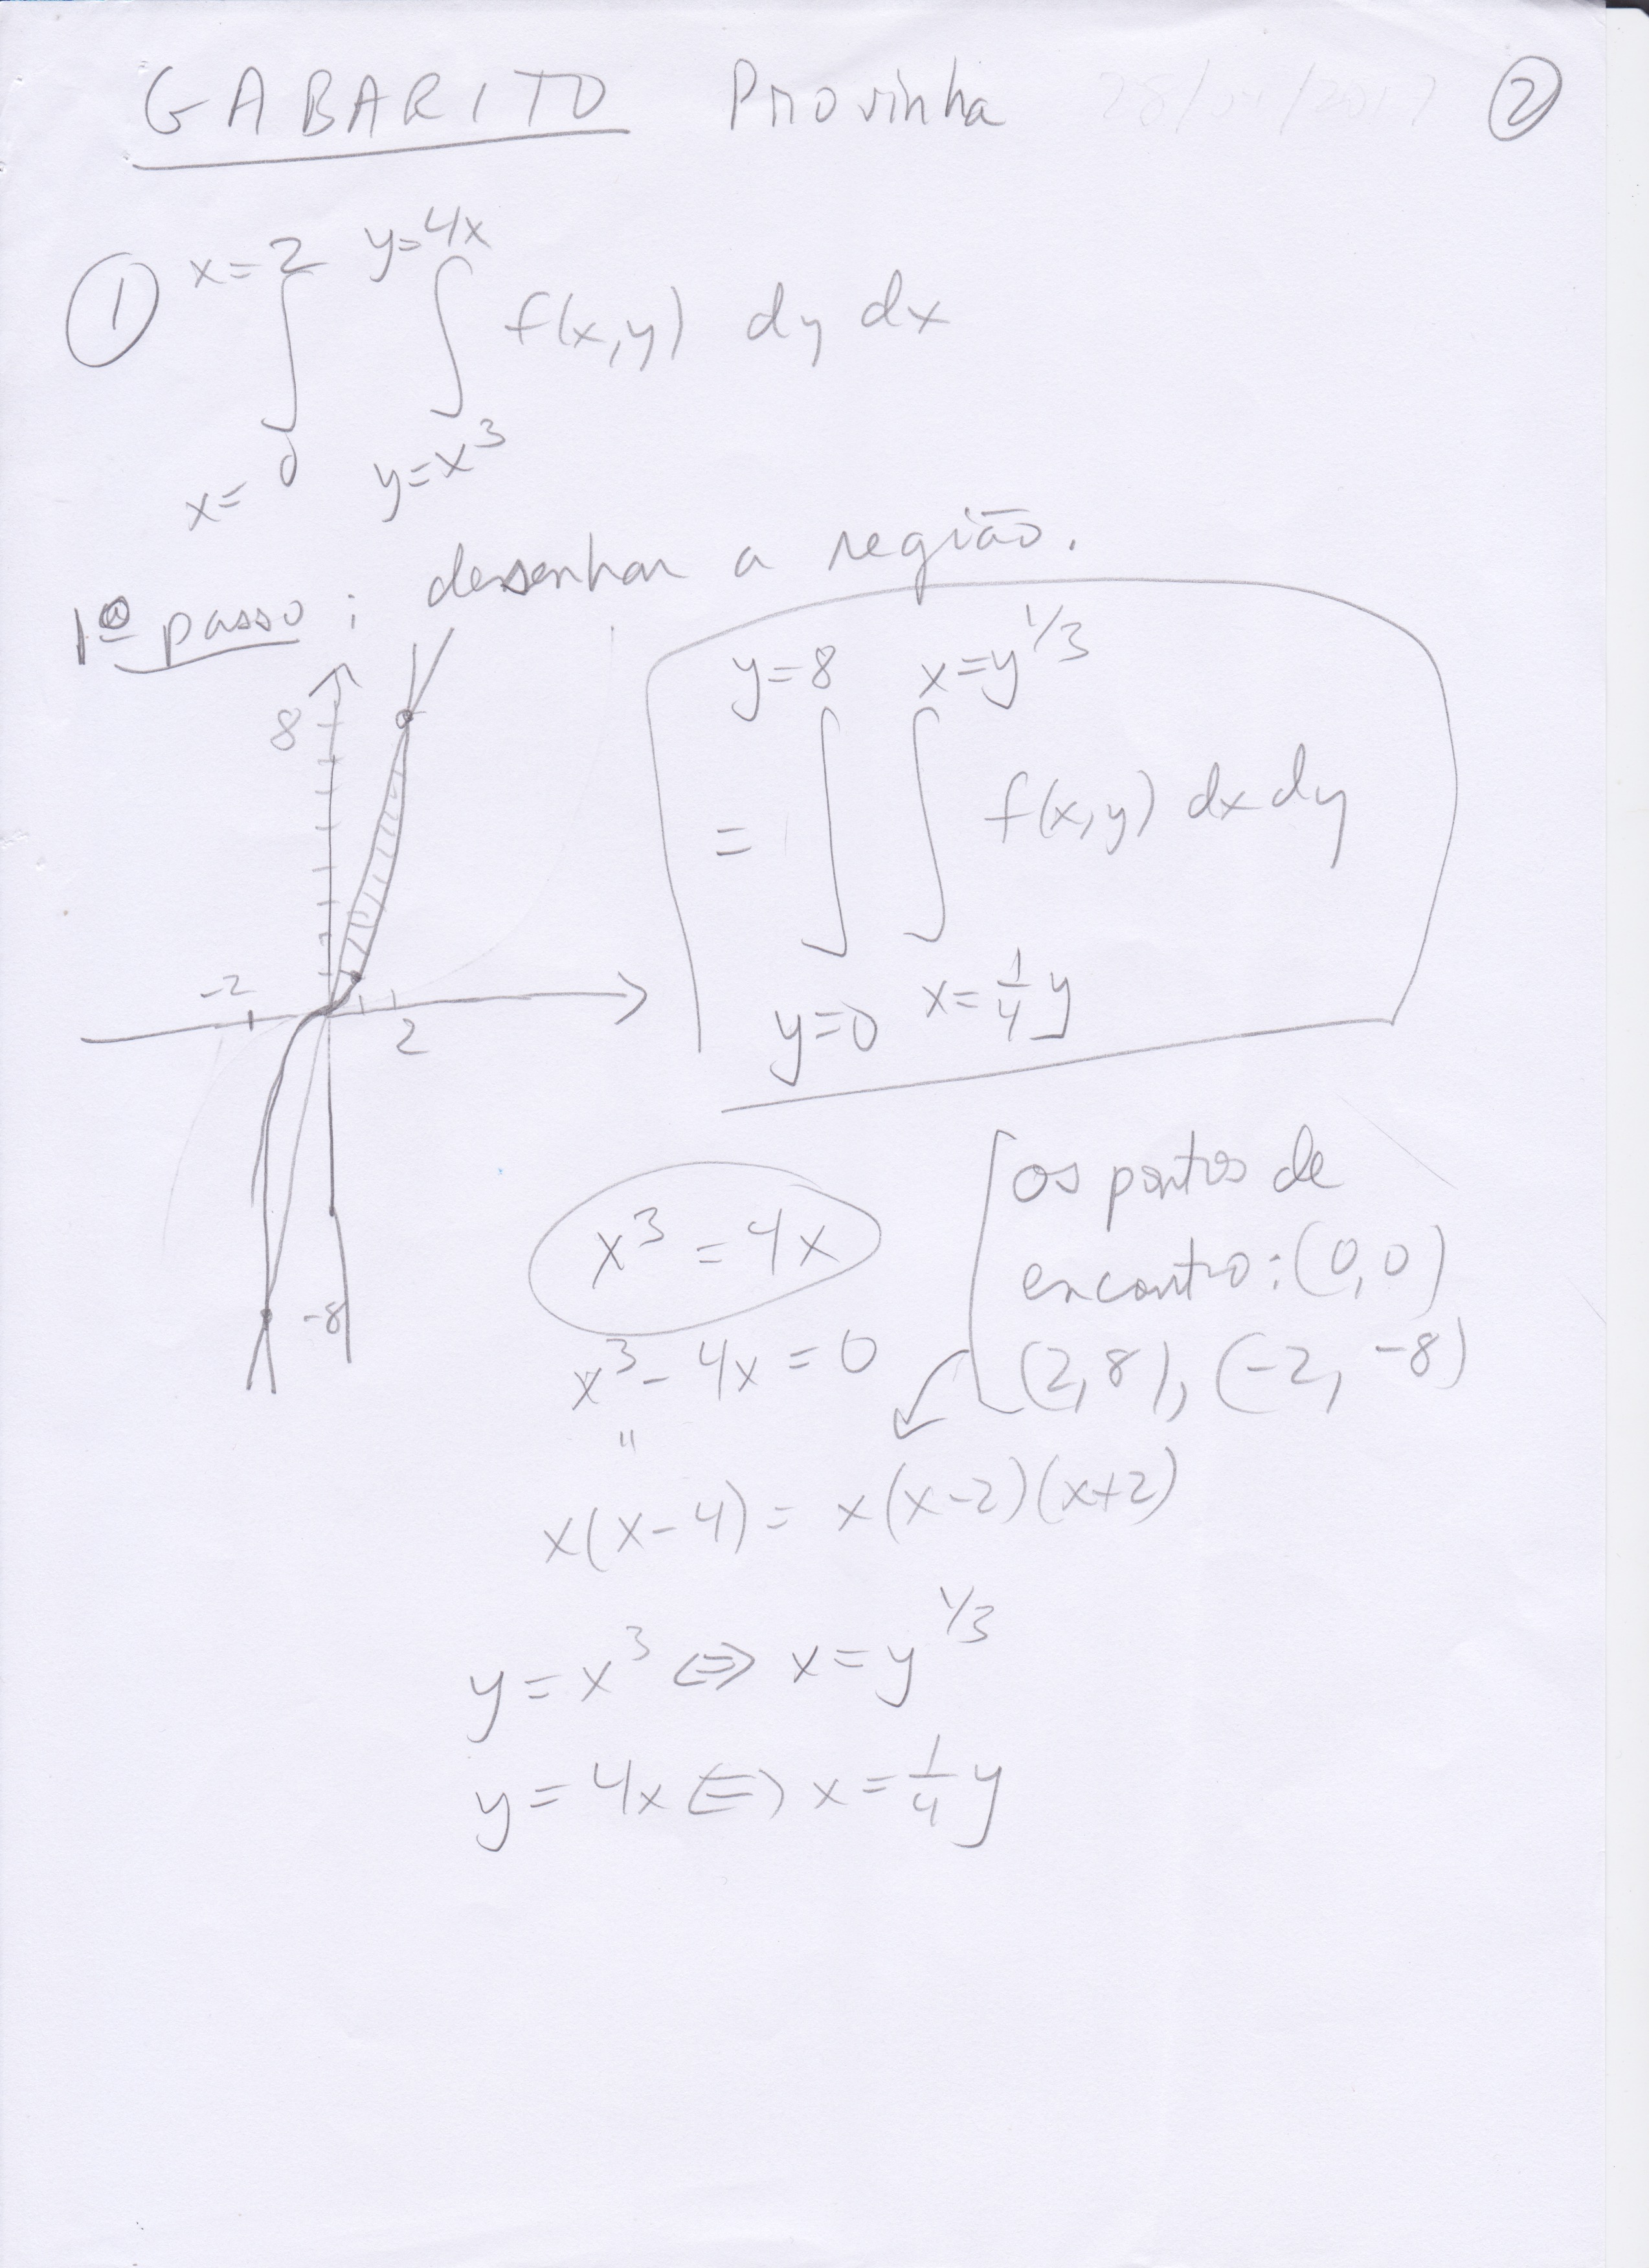 GABARITO Provinha 28/ /2017 ②
① x=2 y=4x
∫ ∫ f(x,y) dy dx
x=0 y=x³
1º passo: desenhar a região.
8
-2
2
-8
y=8 x=y^1/3
= ∫ ∫ f(x,y) dx dy
y=0 x=1/4 y
x³ = 4x
x³ - 4x = 0
"
x(x-4) = x(x-2)(x+2)
os pontos de
encontro: (0,0)
(2,8), (-2,-8)
y = x³ ⇔ x = y^1/3
y = 4x ⇔ x = 1/4 y